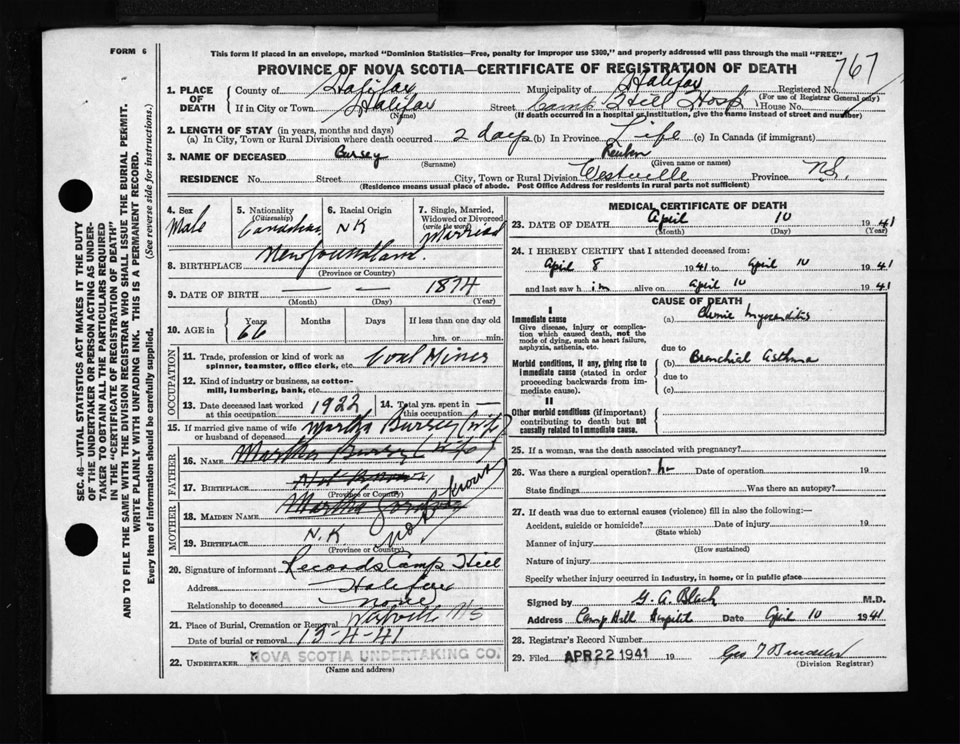 FORM 6
This form if placed in an envelope, marked "Dominion Statistics—Free, penalty for improper use $300," and properly addressed will pass through the mail "FREE"
767
PROVINCE OF NOVA SCOTIA—CERTIFICATE OF REGISTRATION OF DEATH
1. PLACE OF DEATH
County of Halifax Municipality of Halifax Registered No.
(For use of Registrar General only)
If in City or Town Halifax Street Camp Hill Hosp House No.
(Name) (If death occurred in a hospital or institution, give the name instead of street and number)
2. LENGTH OF STAY (in years, months and days)
(a) In City, Town or Rural Division where death occurred 2 days (b) In Province Life (c) In Canada (if immigrant)
3. NAME OF DECEASED Bursey Reuben
(Surname) (Given name or names)
RESIDENCE No. Street City, Town or Rural Division Westville Province N.S.
(Residence means usual place of abode. Post Office Address for residents in rural parts not sufficient)
4. Sex Male
5. Nationality (Citizenship) Canadian
6. Racial Origin NK
7. Single, Married, Widowed or Divorced (write the word) Married
8. BIRTHPLACE Newfoundland.
(Province or Country)
9. DATE OF BIRTH — — 1874
(Month) (Day) (Year)
10. AGE in Years 66 Months Days If less than one day old
hrs. or min.
OCCUPATION
11. Trade, profession or kind of work as spinner, teamster, office clerk, etc. Coal Miner
12. Kind of industry or business, as cotton-mill, lumbering, bank, etc.
13. Date deceased last worked at this occupation 1922
14. Total yrs. spent in this occupation —
15. If married give name of wife or husband of deceased Martha Bursey (wife)
FATHER
16. NAME Martha Bursey (wife)
17. BIRTHPLACE Not Known
(Province or Country)
MOTHER
18. MAIDEN NAME Martha
not known
19. BIRTHPLACE N.K
(Province or Country)
20. Signature of informant Records Camp Hill
Address Halifax
Relationship to deceased none
21. Place of Burial, Cremation or Removal Westville NS
Date of burial or removal 13-4-41
22. UNDERTAKER NOVA SCOTIA UNDERTAKING CO.
(Name and address)
MEDICAL CERTIFICATE OF DEATH
23. DATE OF DEATH April 10 1941
(Month) (Day) (Year)
24. I HEREBY CERTIFY that I attended deceased from:
April 8 1941 to April 10 1941
and last saw him alive on April 10 1941
CAUSE OF DEATH
I
Immediate cause (a) Chronic Myocarditis
Give disease, injury or complication which caused death, not the mode of dying, such as heart failure, asphyxia, asthenia, etc.
due to
Morbid conditions, if any, giving rise to immediate cause (stated in order proceeding backwards from immediate cause).
(b) Bronchial Asthma
due to
(c)
II
Other morbid conditions (if important) contributing to death but not causally related to immediate cause.
25. If a woman, was the death associated with pregnancy?
26. Was there a surgical operation? no Date of operation 19
State findings Was there an autopsy?
27. If death was due to external causes (violence) fill in also the following:—
Accident, suicide or homicide? Date of injury 19
(State which)
Manner of injury
(How sustained)
Nature of injury
Specify whether injury occurred in industry, in home, or in public place
Signed by G. A. Black M.D.
Address Camp Hill Hospital Date April 10 1941
28. Registrar's Record Number
29. Filed APR 22 1941 19
(Division Registrar)
SEC. 46—VITAL STATISTICS ACT MAKES IT THE DUTY
OF THE UNDERTAKER OR PERSON ACTING AS UNDER-
TAKER TO OBTAIN ALL THE PARTICULARS REQUIRED
IN THE "CERTIFICATE OF REGISTRATION OF DEATH"
AND TO FILE THE SAME WITH THE DIVISION REGISTRAR WHO SHALL ISSUE THE BURIAL PERMIT.
WRITE PLAINLY WITH UNFADING INK. THIS IS A PERMANENT RECORD.
Every item of information should be carefully supplied. (See reverse side for instructions.)